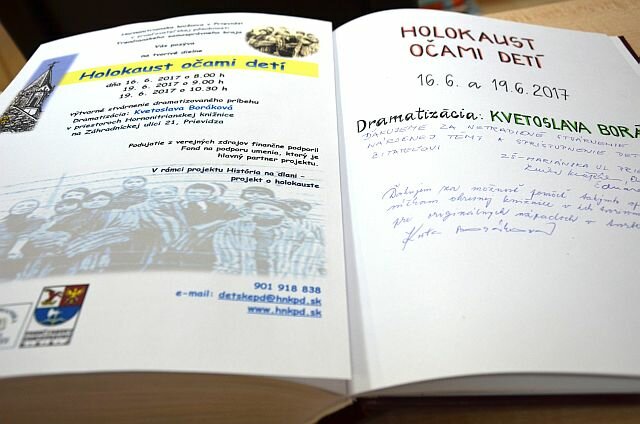 Hornonitrianska knižnica v Prievidzi
v zriaďovateľskej pôsobnosti
Trenčianskeho samosprávneho kraja
Vás pozýva
na tvorivé dielne
Holokaust očami detí
dňa 16. 6. 2017 o 8.00 h
19. 6. 2017 o 9.00 h
19. 6. 2017 o 10.30 h
výtvarné stvárnenie dramatizovaného príbehu
Dramatizácia: Kvetoslava Boráková
v priestoroch Hornonitrianskej knižnice
na Záhradníckej ulici 21, Prievidza
Podujatie z verejných zdrojov finančne podporil
Fond na podporu umenia, ktorý je
hlavný partner projektu.
V rámci projektu História na dlani –
projekt o holokauste
901 918 838
e-mail: detskepd@hnkpd.sk
www.hnkpd.sk
HOLOKAUST
OČAMI DETÍ
16. 6. a 19.6. 2017
Dramatizácia: KVETOSLAVA BORÁ
ĎAKUJEME ZA NETRADIČNÉ STVÁRNENIE
NÁROČNEJ TÉMY A SPRÍSTUPNENIE DET
ČITATEĽOVI
ZŠ-MARIÁNSKA UL
Ďakujem za možnosť
pre originálnych nápadoch v